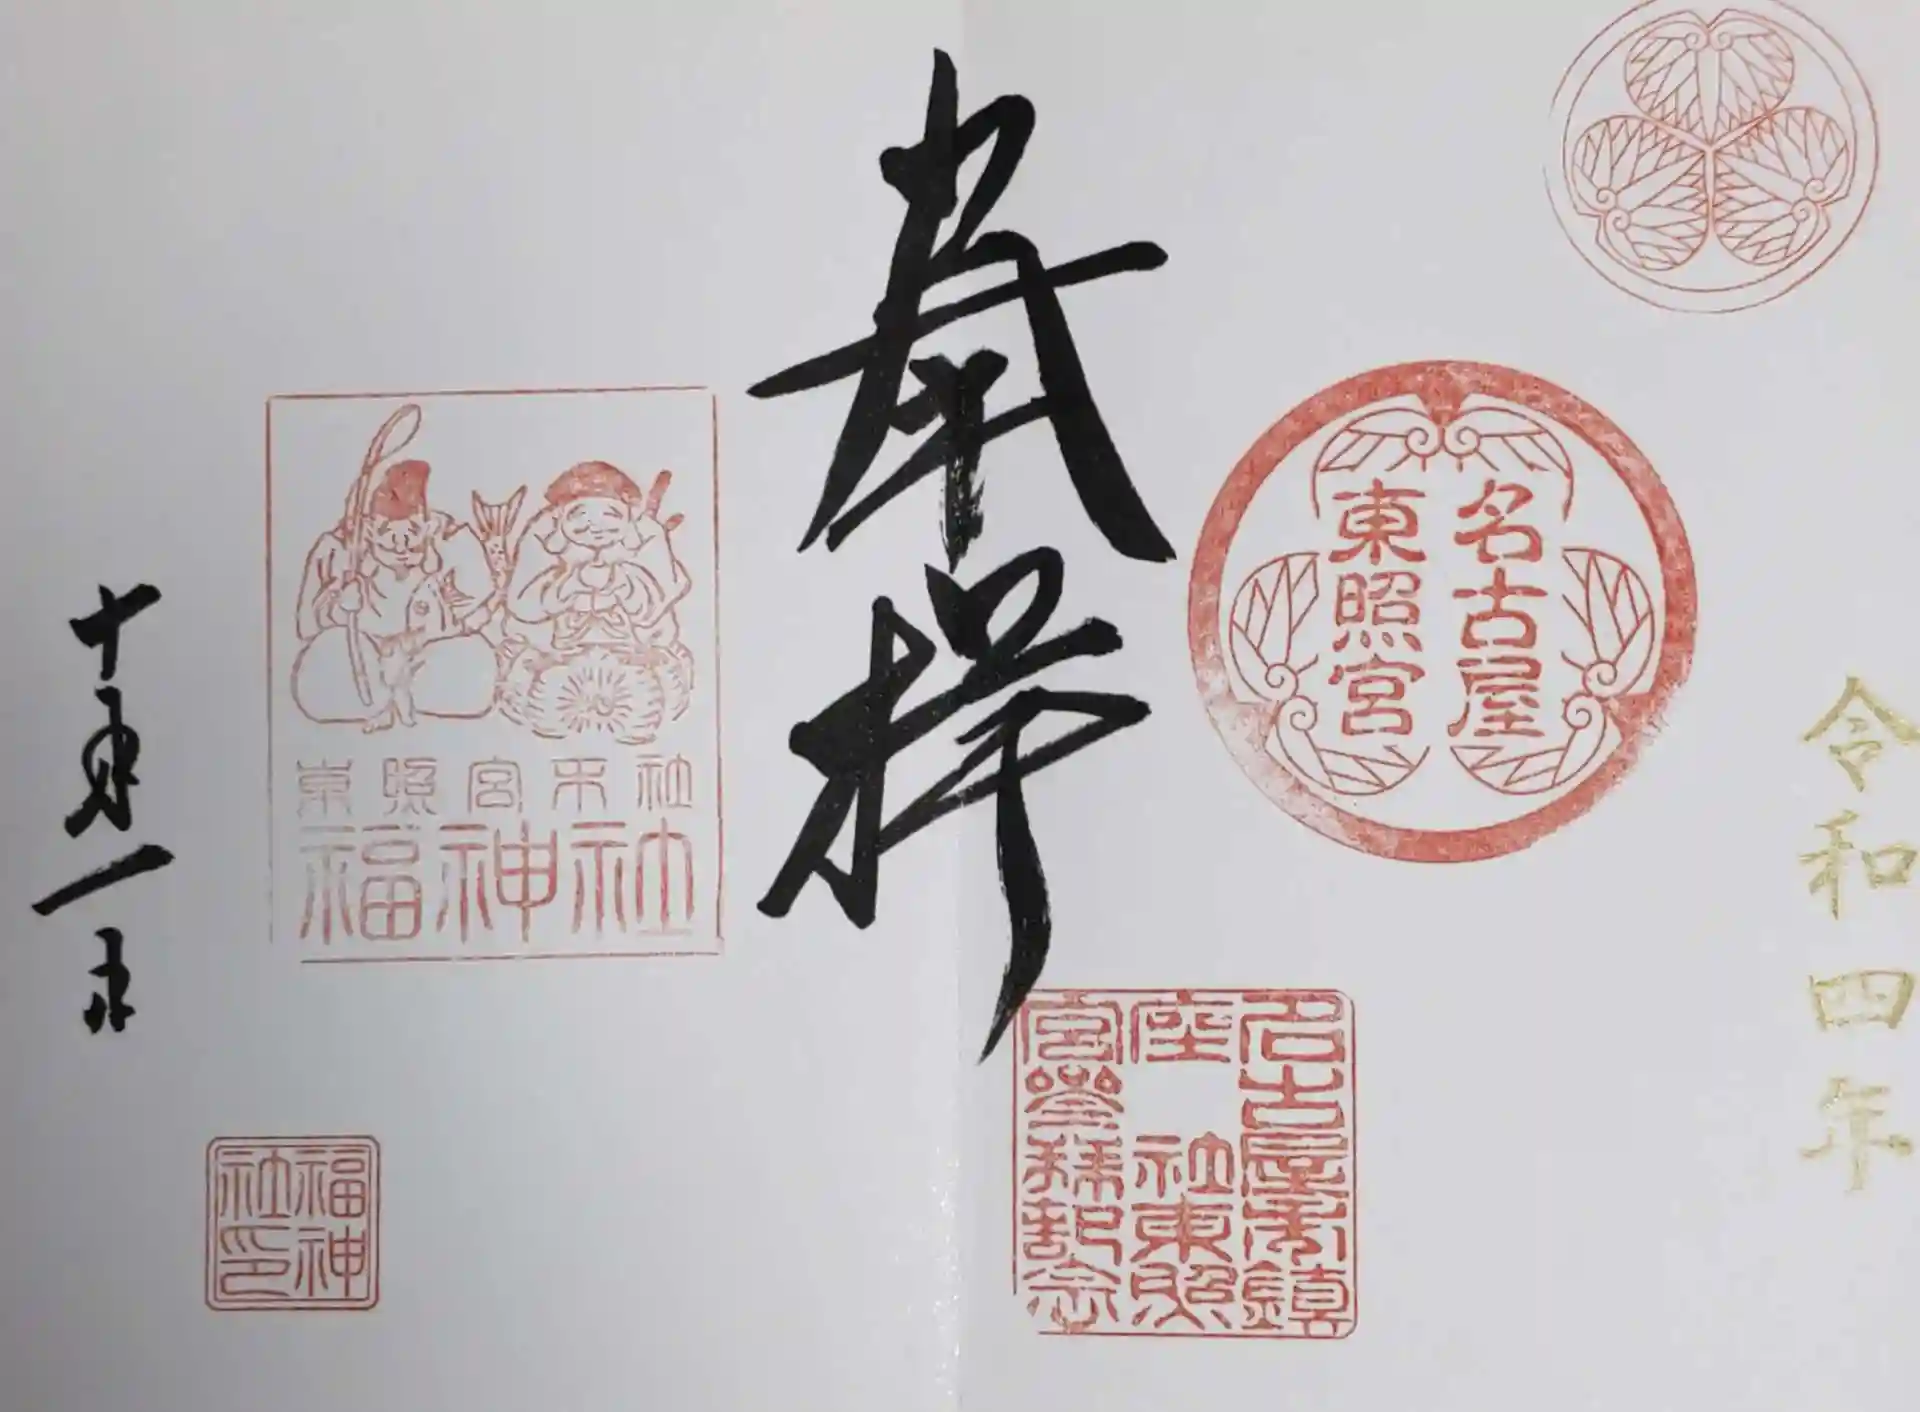 令和四年
名古屋
東照宮
名古屋市鎮
座 社東照
宮参拝記念
奉拝
東照宮末社
福神社
福神
社印
十月一日